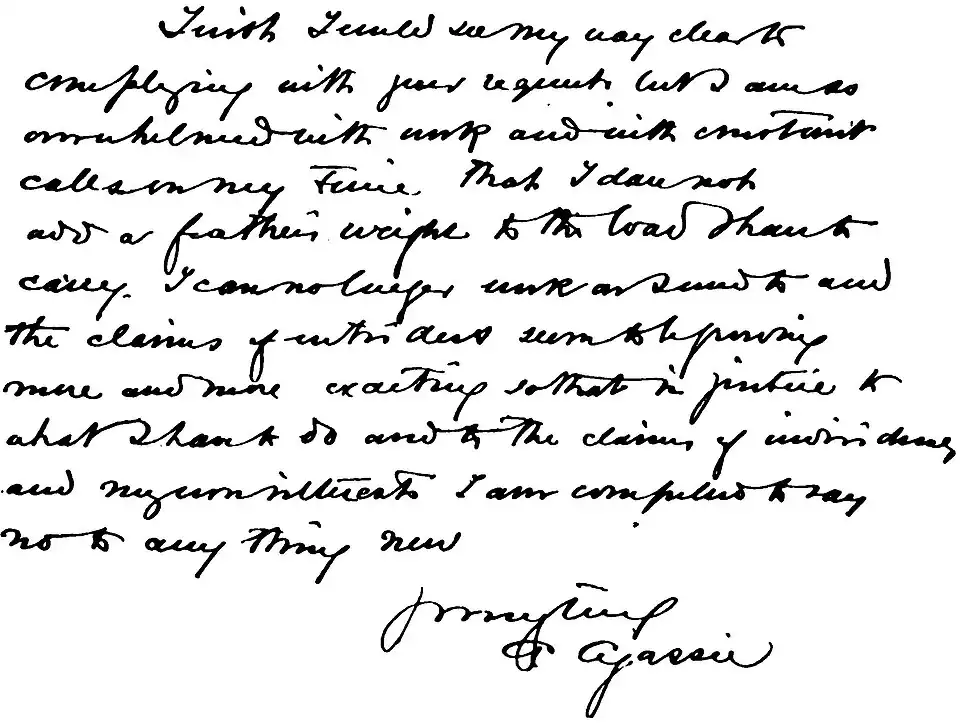 I wish I could see my way clear to
complying with your request but I am so
overwhelmed with work and with constant
calls on my time that I dare not
add a feather's weight to the load I have to
carry. I can no longer work as I used to and
the claims of outsiders seem to be growing
more and more exacting so that in justice to
what I have to do and to the claims of individuals
and my own interests I am compelled to say
no to any thing new
yours very truly
A Agassiz